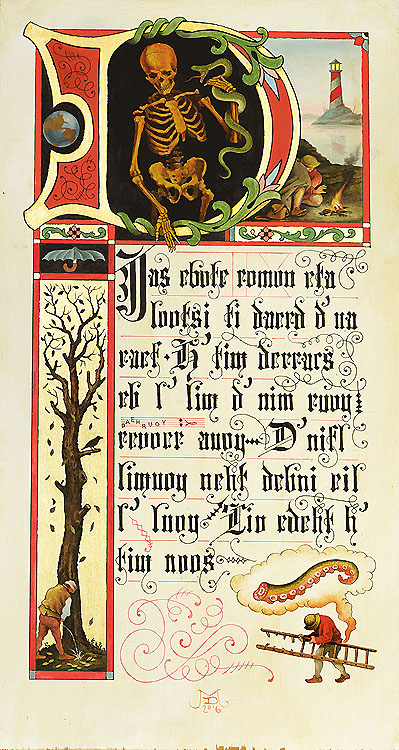 Jas ebote eomon eta
lootsi ti daerd d'ua
eaef · H' tim derracs
eb l' lim d' nim ruoy
DAER RUOY
revoer auoy... D'nifl
limuoy neht debni eil
l' luoy Lin edeht h'
tim noos
MD
2016